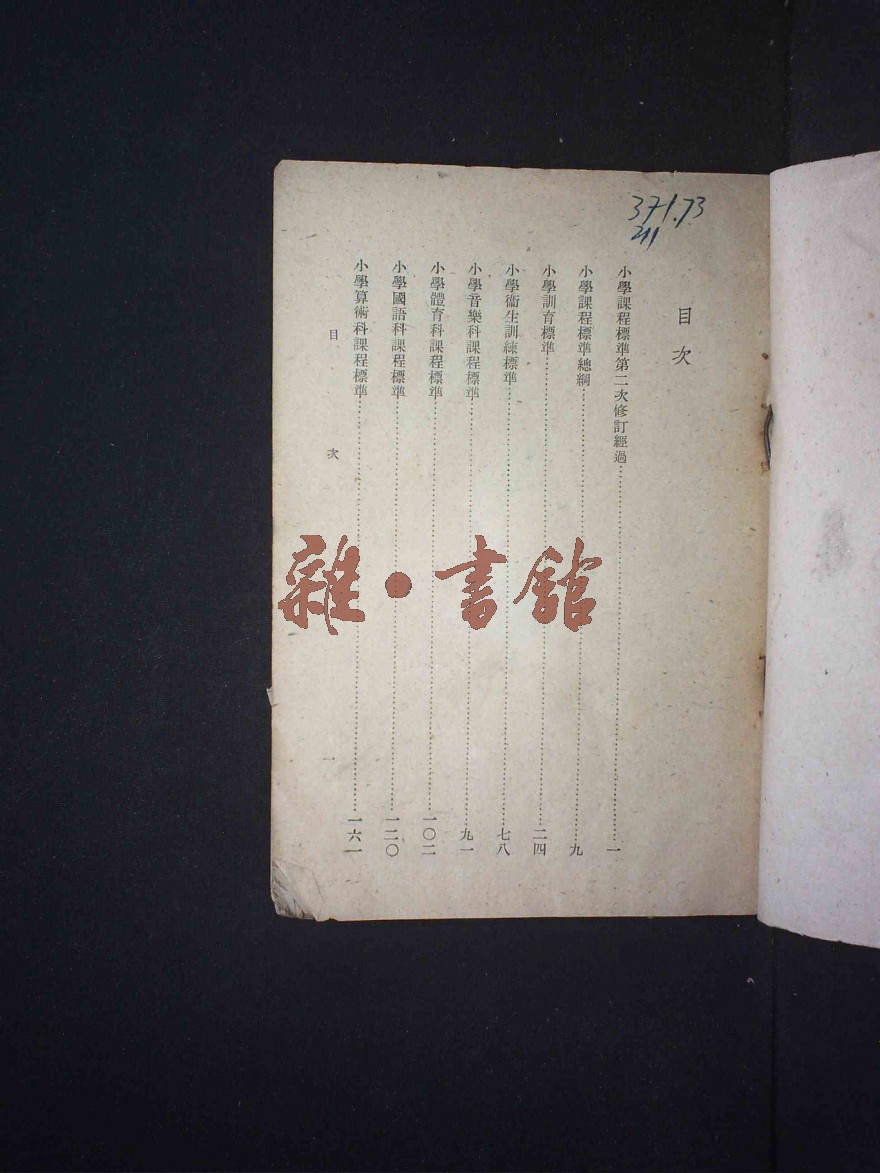 371.73
211
目次
小學課程標準第二次修訂經過……一
小學課程標準總綱……九
小學訓育標準……二四
小學衞生訓練標準……七八
小學音樂科課程標準……九一
小學體育科課程標準……一〇二
小學國語科課程標準……一二〇
小學算術科課程標準……一六一
目次 一
雜·書館